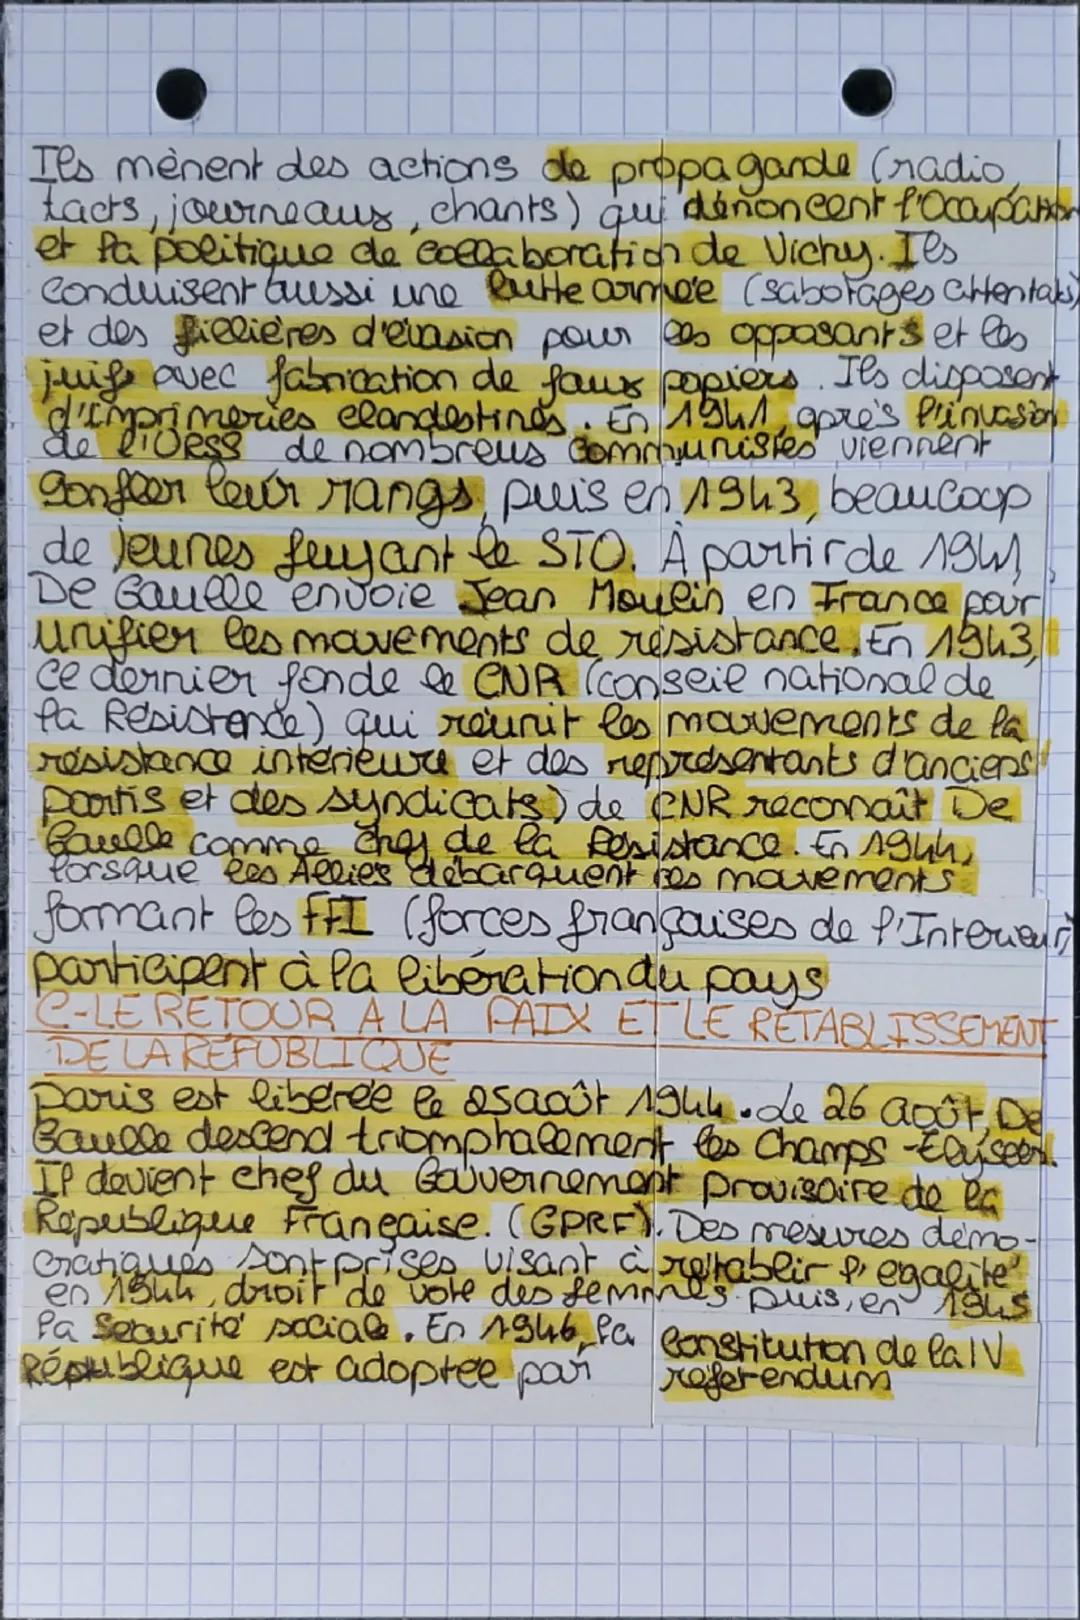 Ils mènent des actions de propagande (radio,
tacts, journeaux, chants) qui dénoncent l'Occupation
et la politique de collaboration de Vichy. Ils
conduisent aussi une lutte armée (sabotages attentats)
et des fillières d'évasion pour les opposants et les
juifs avec fabrication de faux papiers. Ils disposent
d'imprimeries clandestines. En 1941, après l'invasion
de l'URSS de nombreus communistes viennent
gonfler leur rangs, puis en 1943, beaucoup
de jeunes fuyant le STO. À partir de 1941,
De Gaulle envoie Jean Moulin en France pour
unifier les mouvements de résistance. En 1943,
ce dernier fonde le CNR (conseil national de
la Résistence) qui réunit les mouvements de la
résistance intérieure et des représentants d'anciens
partis et des syndicats) de CNR reconnaît De
Gaulle comme chef de la Résistance. En 1944,
lorsque les Alliés débarquent les mouvements
formant les FFI (forces françaises de l'Interieur)
participent à la libération du pays
C-LE RETOUR A LA PAIX ET LE RETABLISSEMENT
DE LA REPUBLIQUE
Paris est libérée le 25 août 1944. Le 26 août, De
Gaulle descend triomphalement les Champs-Elysées.
Il devient chef du Gouvernement provisoire de la
République Française. (GPRF). Des mesures démo-
cratiques sont prises visant à rétablir l'égalité
en 1944, droit de vote des femmes. puis, en 1945
la Sécurité sociale. En 1946, la constitution de la IV
République est adoptée par referendum